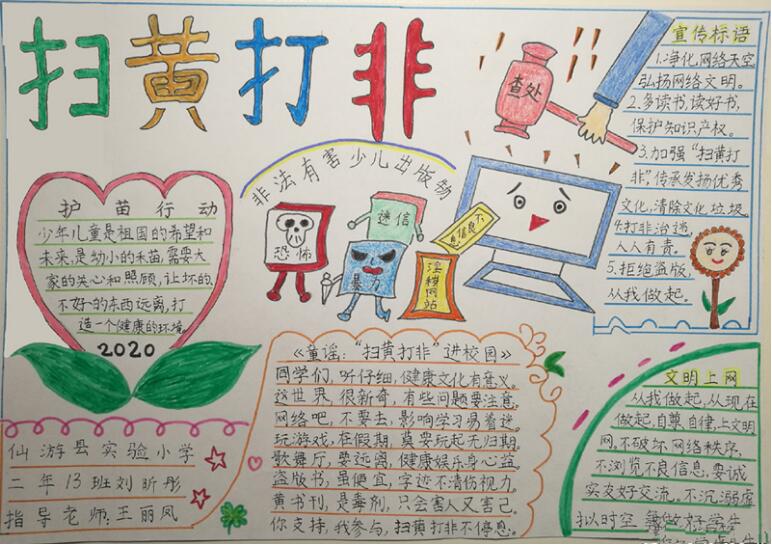 扫黄打非
查处
宣传标语
1.净化网络天空
弘扬网络文明。
2.多读书,读好书,
保护知识产权。
3.加强“扫黄打
非”,传承发扬优秀
文化,清除文化垃圾。
4.打非治违,
人人有责。
5.拒绝盗版,
从我做起。
非法有害少儿出版物
恐怖
迷信
暴力
不良信息
淫秽网站
护苗行动
少年儿童是祖国的希望和
未来,是幼小的禾苗,需要大
家的关心和照顾,让坏的、
不好的东西远离,打
造一个健康的环境。
2020
仙游县实验小学
二年13班刘昕彤
指导老师:王丽凤
《童谣:“扫黄打非”进校园》
同学们,听仔细,健康文化有意义。
这世界,很新奇,有些问题要注意。
网络吧,不要去,影响学习易着迷。
玩游戏,在假期,莫要玩起无归期。
歌舞厅,要远离,健康娱乐身心益。
盗版书,虽便宜,字迹不清伤视力。
黄书刊,是毒剂,只会害人又害己。
你支持,我参与,扫黄打非不停息。
文明上网
从我做起,从现在
做起,自尊自律,上文明
网,不破坏网络秩序,
不浏览不良信息,要诚
实友好交流。不沉溺虚
拟时空